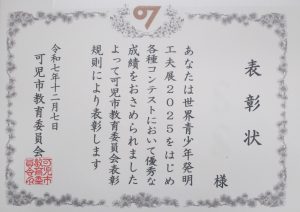 表彰状
様
あなたは世界青少年発明
工夫展2025をはじめ
各種コンテストにおいて優秀な
成績をおさめられました
よって可児市教育委員会表彰
規則により表彰します
令和七年十二月七日
可児市教育委員会